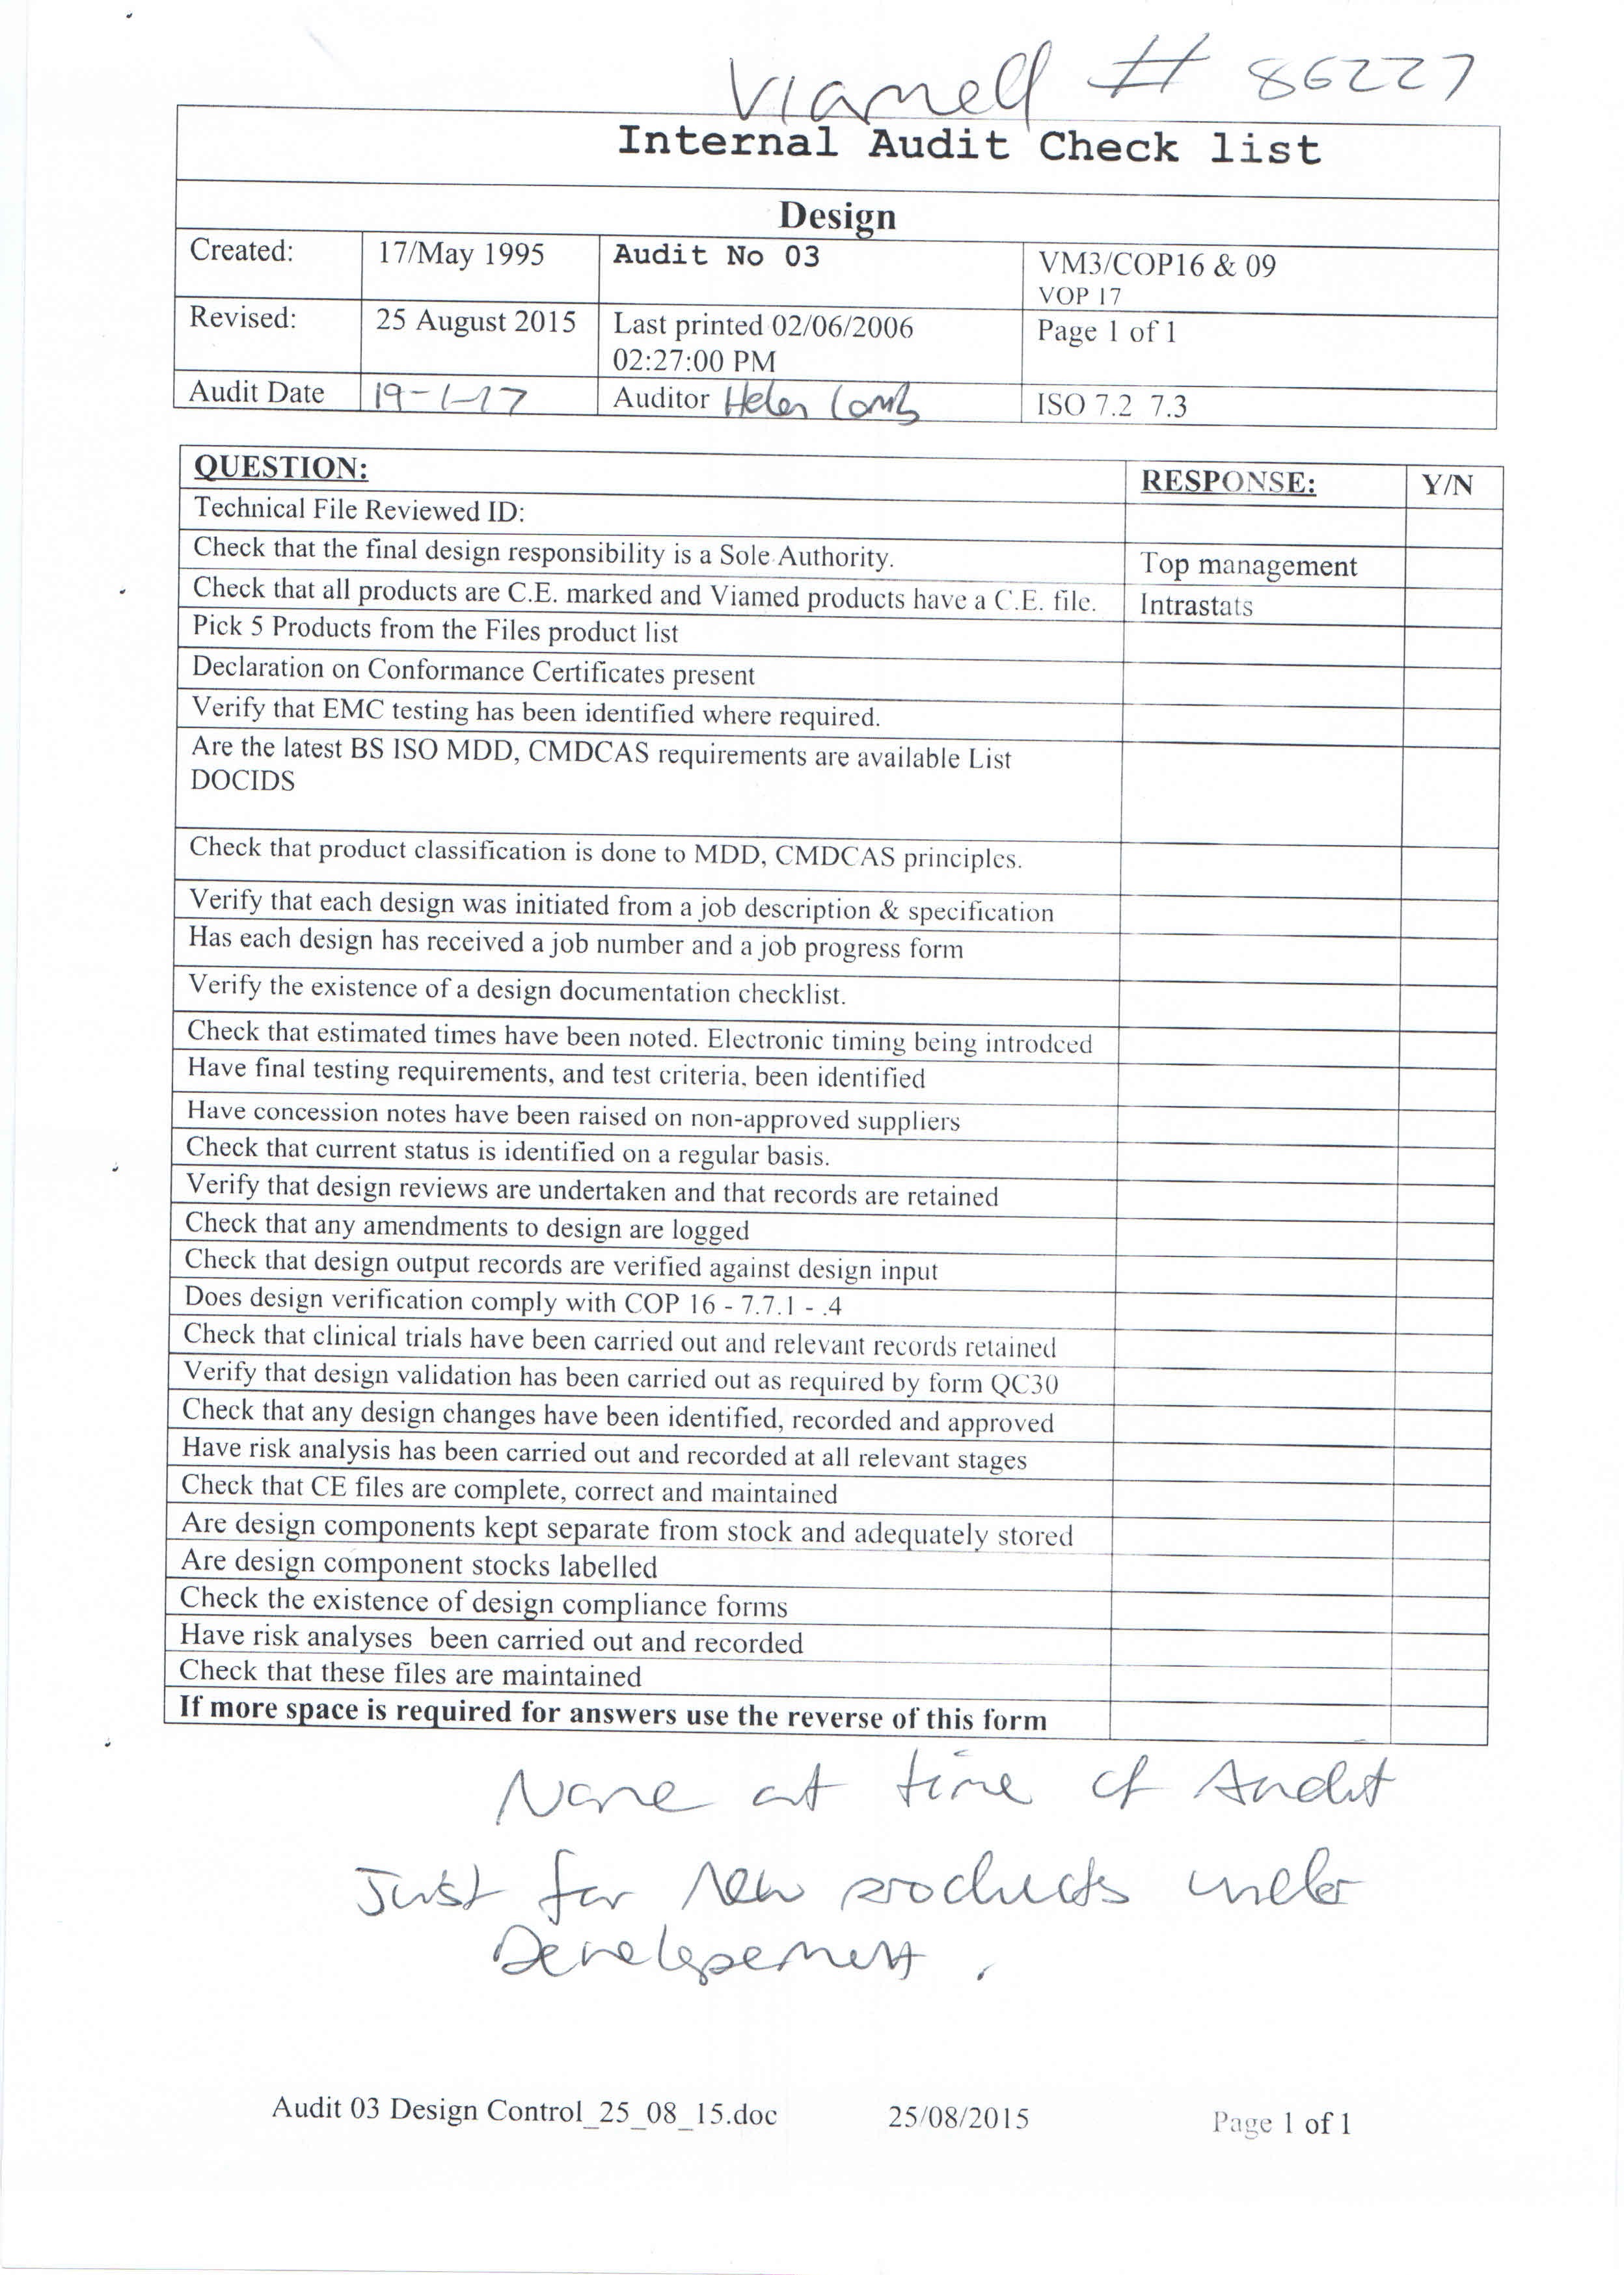 Viamed # 86227
Internal Audit Check list
Design
Created: 17/May 1995 Audit No 03 VM3/COP16 & 09
VOP 17
Revised: 25 August 2015 Last printed 02/06/2006 Page 1 of 1
02:27:00 PM
Audit Date 19-1-17 Auditor Helen Lamb ISO 7.2 7.3
QUESTION: RESPONSE: Y/N
Technical File Reviewed ID:
Check that the final design responsibility is a Sole Authority. Top management
Check that all products are C.E. marked and Viamed products have a C.E. file. Intrastats
Pick 5 Products from the Files product list
Declaration on Conformance Certificates present
Verify that EMC testing has been identified where required.
Are the latest BS ISO MDD, CMDCAS requirements are available List
DOCIDS
Check that product classification is done to MDD, CMDCAS principles.
Verify that each design was initiated from a job description & specification
Has each design has received a job number and a job progress form
Verify the existence of a design documentation checklist.
Check that estimated times have been noted. Electronic timing being introdced
Have final testing requirements, and test criteria, been identified
Have concession notes have been raised on non-approved suppliers
Check that current status is identified on a regular basis.
Verify that design reviews are undertaken and that records are retained
Check that any amendments to design are logged
Check that design output records are verified against design input
Does design verification comply with COP 16 - 7.7.1 - .4
Check that clinical trials have been carried out and relevant records retained
Verify that design validation has been carried out as required by form QC30
Check that any design changes have been identified, recorded and approved
Have risk analysis has been carried out and recorded at all relevant stages
Check that CE files are complete, correct and maintained
Are design components kept separate from stock and adequately stored
Are design component stocks labelled
Check the existence of design compliance forms
Have risk analyses been carried out and recorded
Check that these files are maintained
If more space is required for answers use the reverse of this form
None at time of Audit
Just for New products under
Developement.
Audit 03 Design Control_25_08_15.doc 25/08/2015 Page 1 of 1